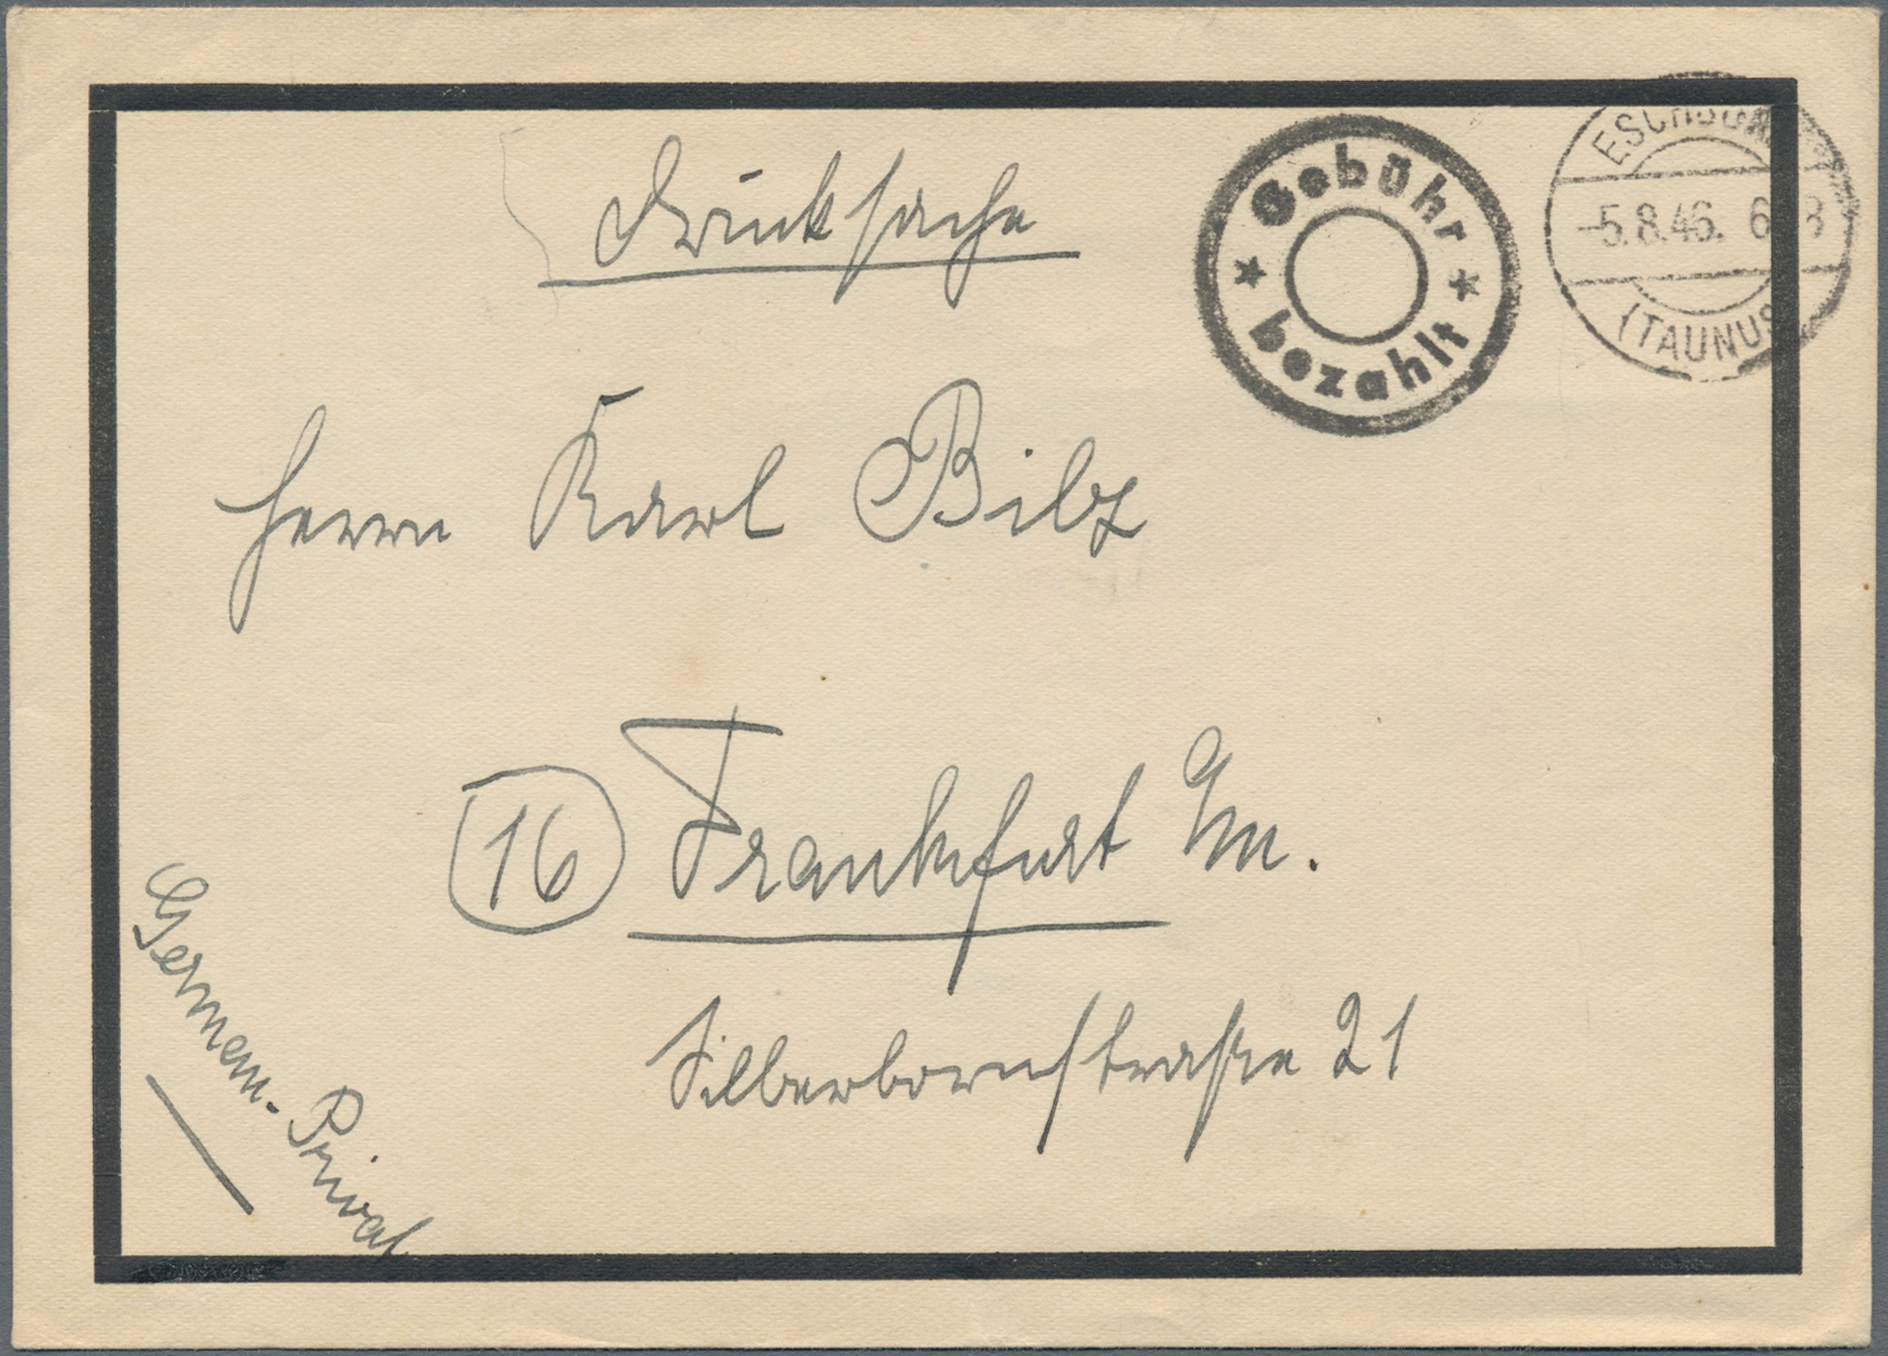 Drucksache
Gebühr
bezahlt
-5.8.46. 6 8
(TAUNUS
Herrn Karl Bilz
16 Frankfurt /M.
Silberbornstraße 21
Privat